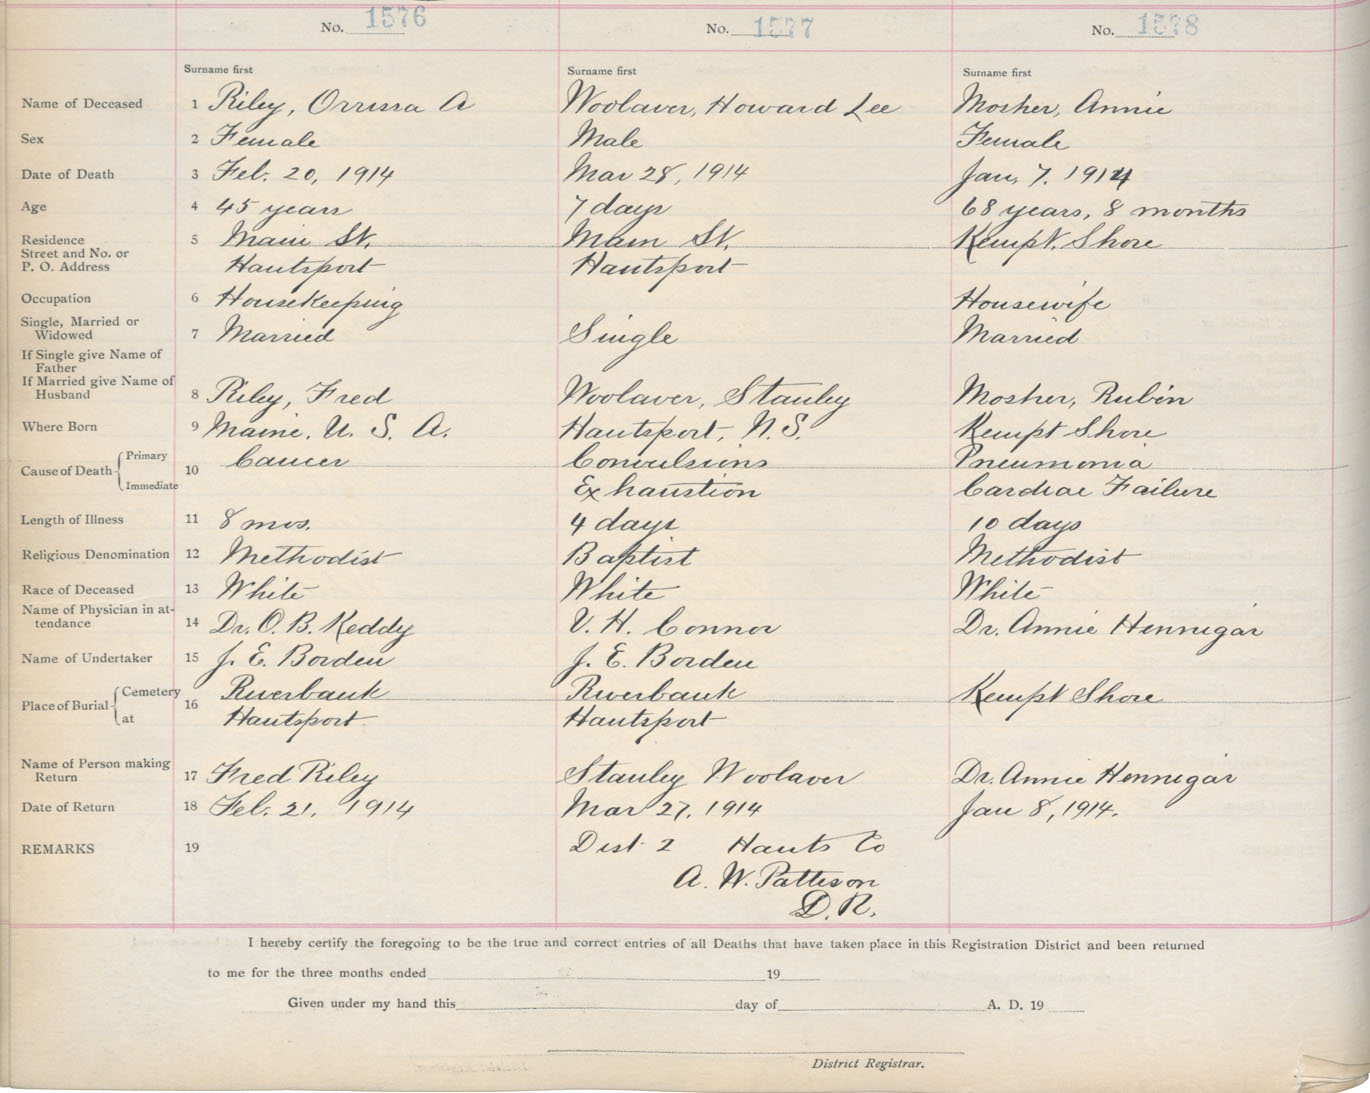 No. 1576 No. 1577 No. 1578
Surname first Surname first Surname first
Name of Deceased 1 Riley, Orrissa A Woolaver, Howard Lee Mosher, Annie
Sex 2 Female Male Female
Date of Death 3 Feb. 20, 1914 Mar 28, 1914 Jan, 7. 1914
Age 4 45 years 7 days 68 years, 8 months
Residence 5 Main St. Main St. Kempt. Shore
Street and No. or
P. O. Address Hantsport Hantsport
Occupation 6 Housekeeping Housewife
Single, Married or
Widowed 7 Married Single Married
If Single give Name of
Father
If Married give Name of
Husband 8 Riley, Fred Woolaver, Stanley Mosher, Rubin
Where Born 9 Maine, U. S. A. Hantsport, N.S. Kempt Shore
Cause of Death Primary 10 Cancer Convulsions Pneumonia
Immediate Exhaustion Cardiac Failure
Length of Illness 11 8 mos. 4 days 10 days
Religious Denomination 12 Methodist Baptist Methodist
Race of Deceased 13 White White White
Name of Physician in at-
tendance 14 Dr. O. B. Keddy V. H. Connor Dr. Annie Hennigar
Name of Undertaker 15 J. E. Borden J. E. Borden
Place of Burial Cemetery 16 Riverbank Riverbank Kempt Shore
at Hantsport Hantsport
Name of Person making
Return 17 Fred Riley Stanley Woolaver Dr. Annie Hennigar
Date of Return 18 Feb. 21, 1914 Mar 27, 1914 Jan 8, 1914.
REMARKS 19 Dist 2 Hants Co
A. W. Patteson
D. R.
I hereby certify the foregoing to be the true and correct entries of all Deaths that have taken place in this Registration District and been returned
to me for the three months ended 19
Given under my hand this day of A. D. 19
District Registrar.